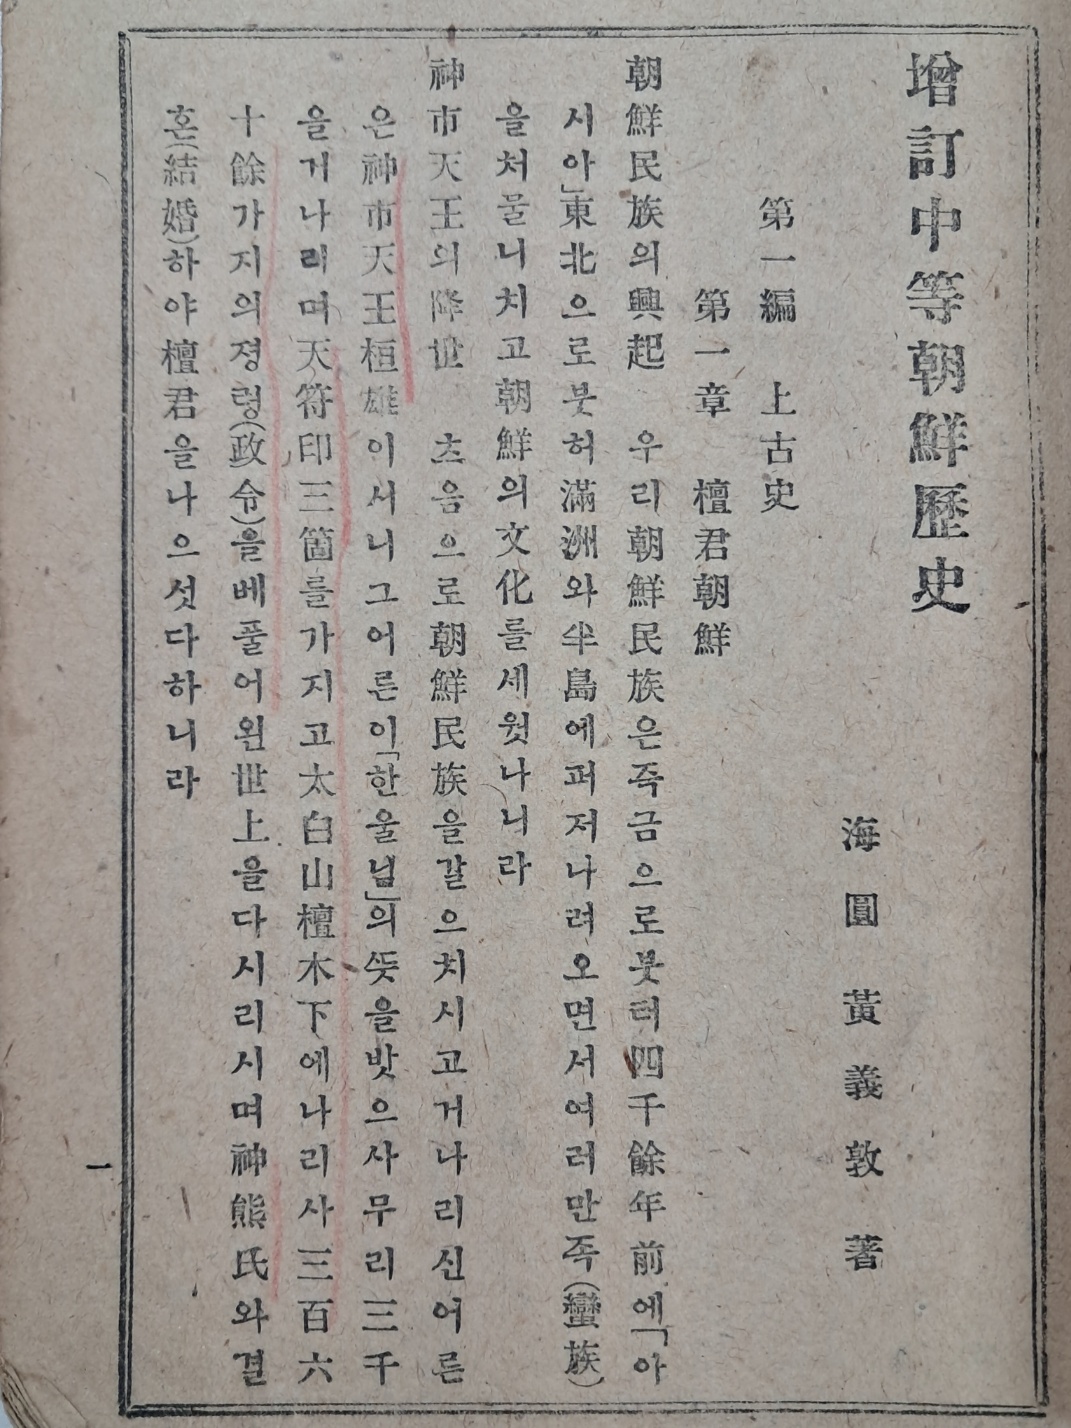 增訂中等朝鮮歷史
海圓 黃義敦 著
第一編 上古史
第一章 檀君朝鮮
朝鮮民族의興起 우리朝鮮民族은족금으로붓터四千餘年前에「아
시아」東北으로붓허滿洲와半島에퍼저나려오면서여러만족(蠻族)
을처물니치고朝鮮의文化를세웟나니라
神市天王의降世 츠음으로朝鮮民族을갈으치시고거나리신어른
은神市天王桓雄이서니그어른이「한울님」의뜻을밧으사무리三千
을거나리며天符印三箇를가지고太白山檀木下에나리사三百六
十餘가지의졍령(政令)을베풀어왼世上을다시리시며神熊氏와결
혼(結婚)하야檀君을나으섯다하니라
一